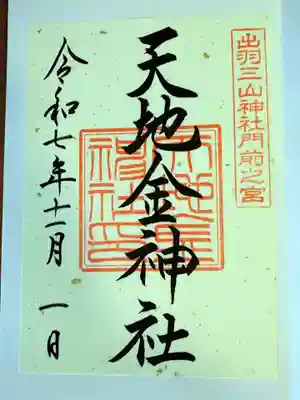 出羽三山神社門前之宮
天地金神社
令和七年十一月一日